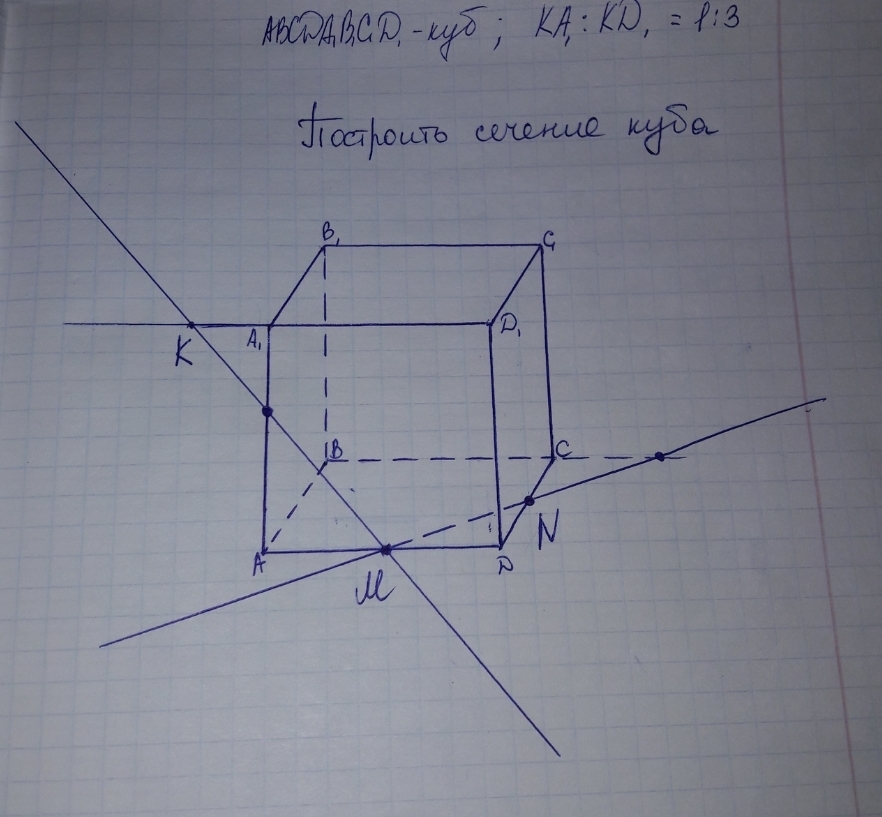 ABCDA₁B₁C₁D₁ - куб ; KA₁ : KD₁ = 1:3
Построить сечение куба
B₁ C₁
K A₁ D₁
B C
N
A M D